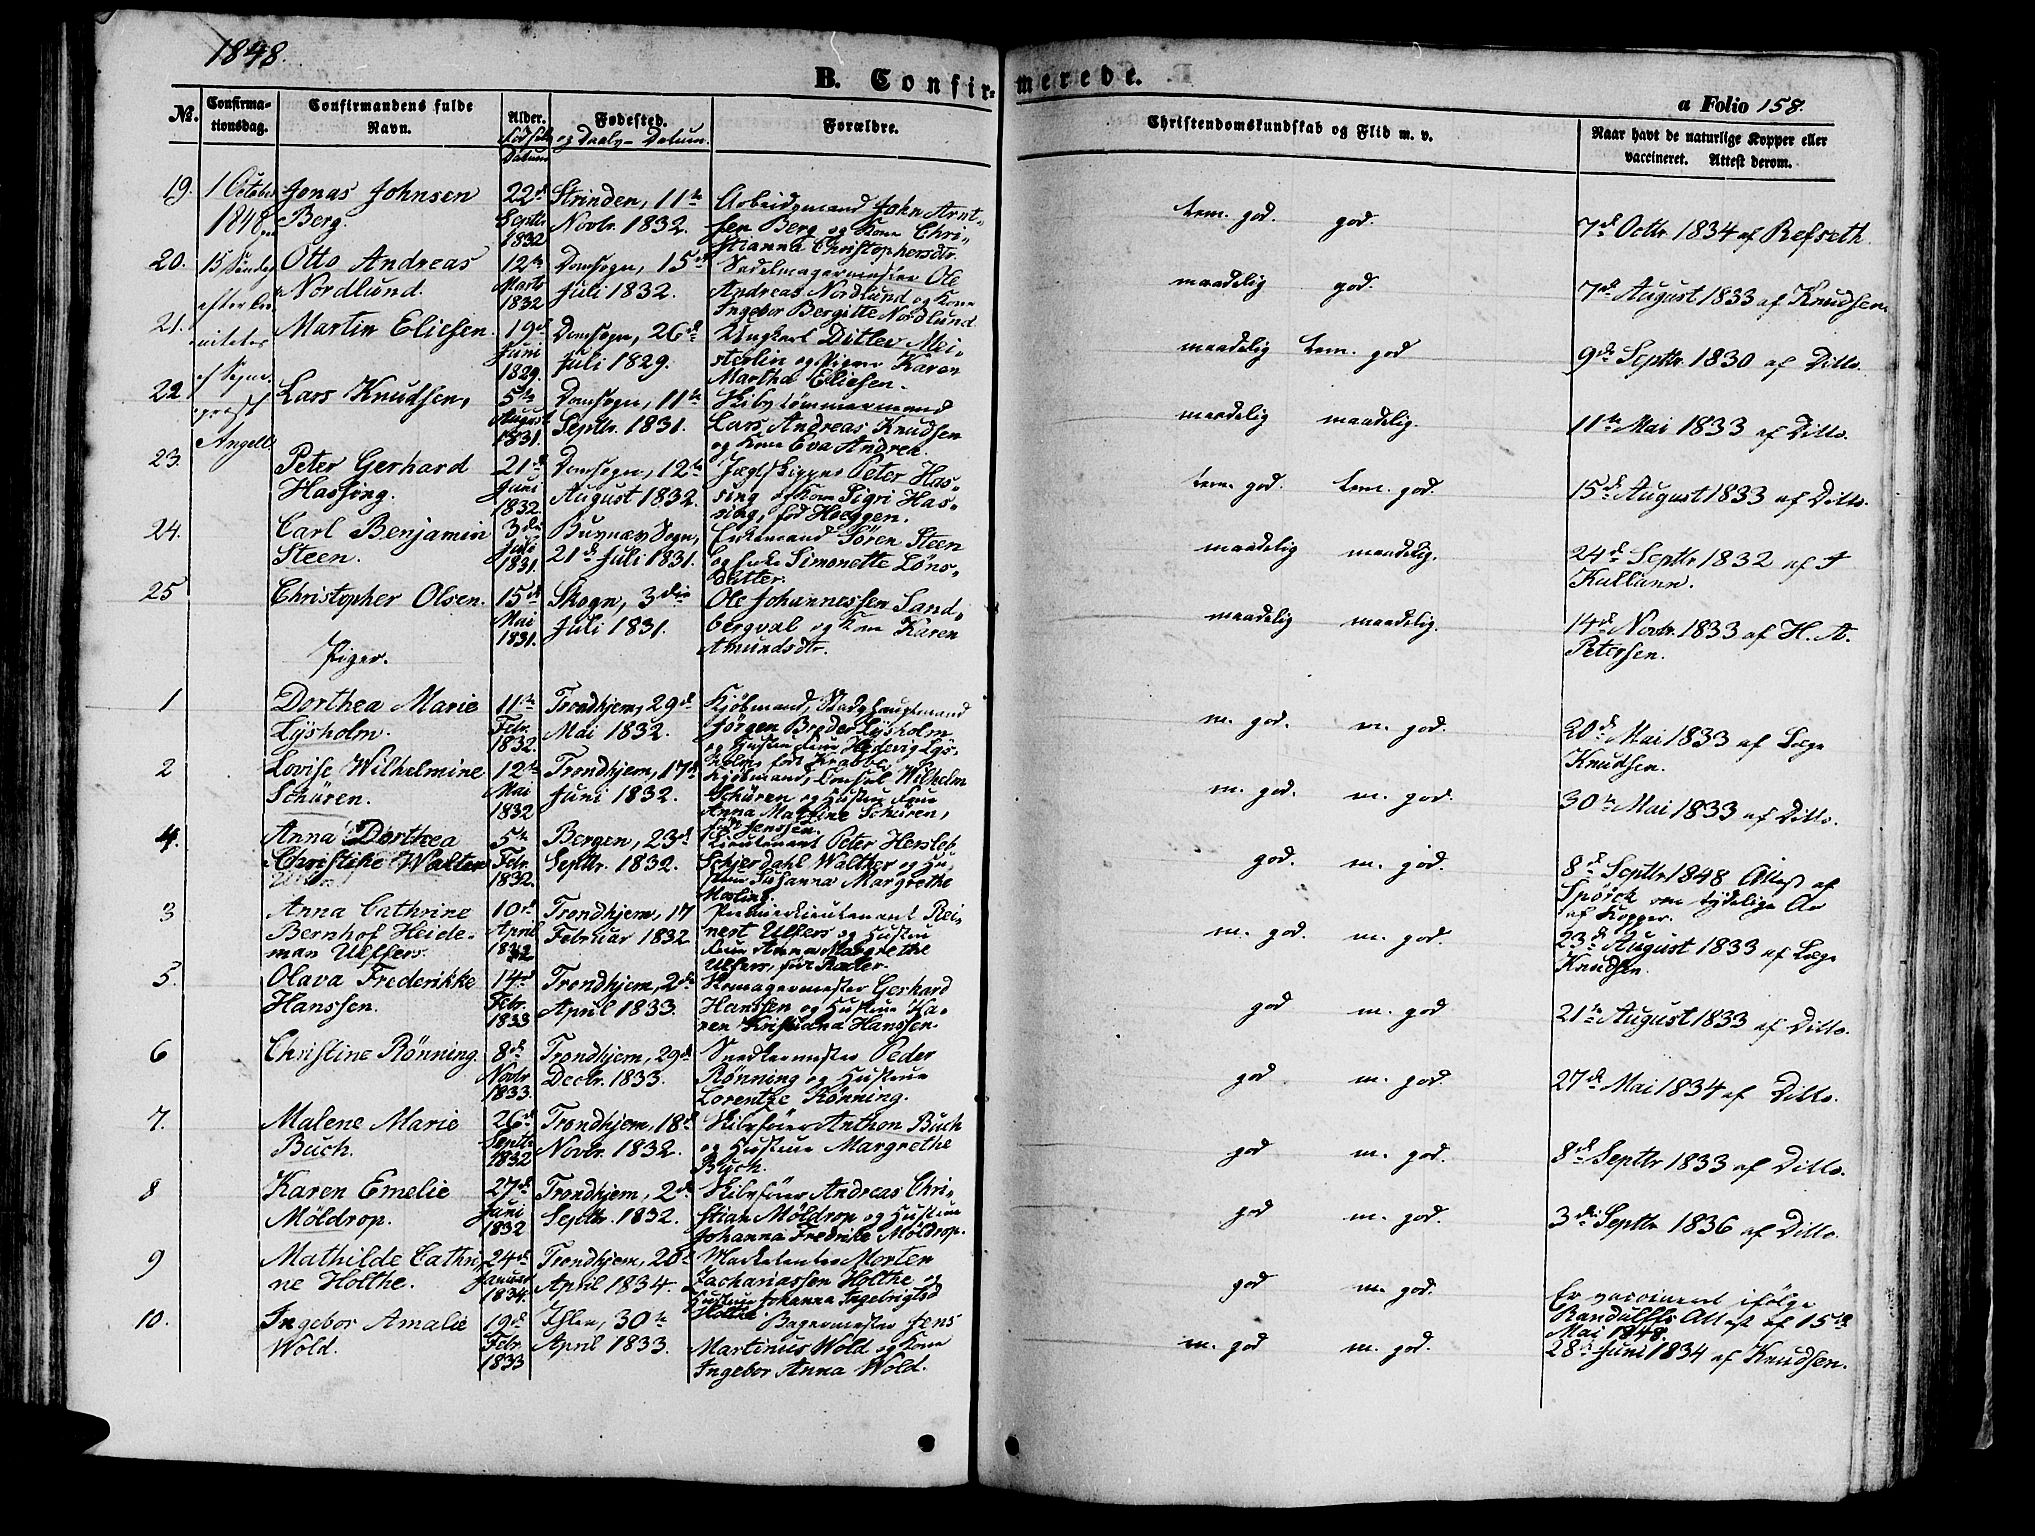 1848.
B. Confir-
merede.
a Folio 158.
No.
Confirma-
tionsdag.
Confirmandens fulde
Navn.
Alder.
Fødsels
Datum
Fødested.
og Daabs-Datum.
Forældre.
Christendomskundskab og Flid m. v.
Naar havt de naturlige Kopper eller
vaccineret. Attest derom.
1 October
1848
15 Søndag
efter
Angell
19. Jonas Johnsen
Berg.
22d
Septbr
1832
Strinden, 11te
Novbr. 1832.
Arbeidsmand John Arnt-
sen Berg og Kone Chri-
stianna Christophersdtr.
tem. god. god.
7d Octbr 1834 af Refseth.
20. Otto Andreas
Nordlund.
12te
Marts
1832
Domsogn, 15de
Juli 1832.
Sadelmagermester Ole
Andreas Nordlund og Kone
Ingebor Bergitte Nordlund.
maadelig god.
7d August 1833 af Knudsen.
21. Martin Eliesen.
19d
Juni
1829.
Domsogn, 26d
Juli 1829.
Ungkarl Ditlev Mei-
sterlin og Pigen Karen
Martha Eliesen.
maadelig tem. god
9d Septbr. 1830 af Ditto.
22 Lars Knudsen,
5te
August
1831.
Domsogn, 11te
Septbr. 1831.
Skibstømmermand
Lars Andreas Knudsen
og Kone Eva Andrea.
maadelig maadelig.
11te Mai 1833 af Ditto.
23. Peter Gerhard
Hassing.
21d
Juni
1832.
Domsogn, 12te
August 1832.
Jægtskipper Peter Has-
sing og Kone Sigri Has-
sing, fød Hoeggen.
tem. god. tem. god.
15d August 1833 af Ditto.
24. Carl Benjamin
Steen.
3die
Juli
1831.
Sogn,
21d Juli 1831.
Enkemand Sören Steen
og Enke Simonette Löns-
datter.
maadelig maadelig.
24d Septbr 1832 af J
Kullann.
25 Christopher Olsen.
15d
Mai
1831.
Skogn, 3die
Juli 1831.
Ole Johannessen Sand-
bergval og Kone Karen
Amundsdtr.
maadelig maadelig.
14d Novbr. 1833 af H. A.
Petersen.
Piger.
1 Dorthea Marie
Lysholm.
11te
Febr.
1832.
Trondhjem, 29d
Mai 1832.
Kjöbmand, Stadshauptmand
Jörgen Breder Lysholm
og Hustru Frue Hedevig Lys-
holm, født Krabbe.
m. god. m. god.
20d Mai 1833 af Læge
Knudsen.
2 Lovise Wilhelmine
Schüren.
12te
Mai
1832
Trondhjem, 17d
Juni 1832.
Kjöbmand, Consul Wilhelm
Schüren og Hustru Frue
Anna Martine Schüren,
fød Jenssen.
m. god. m. god.
30te Mai 1833 af Ditto.
4. Anna Dorthea
Christine Walter
5te
Febr.
1832.
Bergen, 23d
Septbr. 1832.
Lieutenant Peter Hersleb
Schjerdahl Walther og Hu-
strue Susanna Margrethe
Mosling.
god. m. god.
8d Septbr 1848 Attest af
Spörck om tydelige Ar
af Kopper.
3 Anna Cathrine
Bernhof Heide-
man Ulffers.
10d
April
1832
Trondhjem, 17
Februar 1832
Premierlieutenant Rei-
nert Ulfers og Hustrue
Frue Anna Margrethe
Ulfers, fød Rader.
m. god. m. god.
23d August 1833 af Læge
Knudsen.
5. Olava Frederikke
Hanssen.
14d
Febr.
1833
Trondhjem, 2de
April 1833.
Skomagermester Gerhard
Hanssen og Hustrue Ka-
ren Kristiana Hanssen.
god m. god
21te August 1833 af Ditto.
6 Christine Rönning
8d
Novbr
1833.
Trondhjem, 29d
Decbr. 1833.
Snedkermester Peder
Rönning og Hustrue
Lorentze Rönning.
god m. god.
27d Mai 1834 af Ditto.
7. Malene Marie
Buch.
26d
Septbr
1832
Trondhjem, 18d
Novbr. 1832.
Skibsförer Anthon Buch
og Hustrue Margrethe
Buch.
god m. god.
8d Septbr 1833 af Ditto.
8 Karen Emelie
Möldrop.
27d
Juni
1832
Trondhjem, 2d
Septbr. 1832.
Skibsförer Andreas Chri-
stian Möldrop og Hustrue
Johanna Fredrike Möldrop.
god m. god.
3die Septbr 1836 af Ditto.
9 Mathilde Cathri-
ne Holthe.
24d
Januar
1834.
Trondhjem, 20d
April 1834.
Marketenter Morten
Zachariassen Holthe og
Hustrue Johanna Ingebrigtsd
Holthe
god m. god.
Er vaccineret ifölge
Randulffs Attest af 15de
Mai 1848.
10. Ingebor Amalie
Wold.
19d
Febr
1833
Ihlen, 30te
April 1833.
Bagermester Jens
Martinus Wold og Kone
Ingebor Anna Wold.
m. god m. god.
28d Juni 1834 af Knudsen.